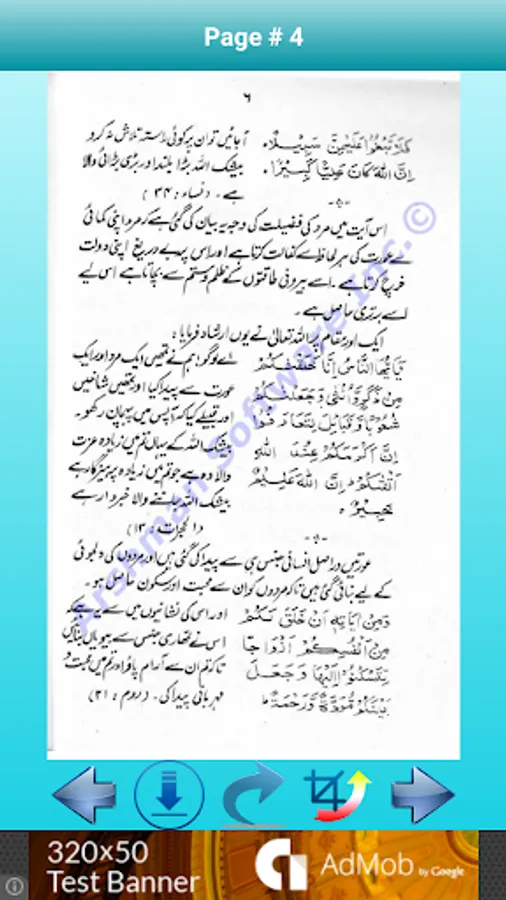 Page # 4
٦
فَلَا تَبْغُوا عَلَيْهِنَّ سَبِيْلًا ؕ آجائیں تو ان پر کوئی راستہ تلاش نہ کرو
اِنَّ اللّٰهَ كَانَ عَلِيًّا كَبِيْرًا ۔ بیشک اللہ بڑا بلند اور بڑی بڑائی والا
ہے۔ (نساء : ۳۴)
اس آیت میں مرد کی فضیلت کی وجہ یہ بیان کی گئی ہے کہ مرد اپنی کمائی
سے عورت کی ہر لحاظ سے کفالت کرتا ہے اور اس پر بے دریغ اپنی دولت
خرچ کرتا ہے۔ اسے بیرونی طاقتوں کے ظلم و ستم سے بچاتا ہے اس لیے
اسے برتری حاصل ہے۔
ایک اور مقام پر اللہ تعالیٰ نے یوں ارشاد فرمایا :
يٰٓاَيُّهَا النَّاسُ اِنَّا خَلَقْنٰكُمْ اے لوگو! ہم نے تمھیں ایک مرد اور ایک
مِنْ ذَكَرٍ وَّاُنْثٰى وَجَعَلْنٰكُمْ عورت سے پیدا کیا اور تمھیں شاخیں
شُعُوْبًا وَّقَبَآئِلَ لِتَعَارَفُوْا اور قبیلے کیا کہ آپس میں پہچان رکھو۔
اِنَّ اَكْرَمَكُمْ عِنْدَ اللّٰهِ بیشک اللہ کے یہاں تم میں زیادہ عزت
اَتْقٰىكُمْ اِنَّ اللّٰهَ عَلِيْمٌ والا وہ ہے جو تم میں زیادہ پرہیزگار ہے
خَبِيْرٌ ہ بیشک اللہ جاننے والا خبردار ہے
(الحجرات : ۱۳)
عورتیں دراصل انسانی جنس ہی سے پیدا کی گئی ہیں اور مردوں کی دلجوئی
کے لیے بنائی گئی ہیں تاکہ مردوں کو ان سے محبت اور سکون حاصل ہو۔
وَمِنْ اٰيَاتِهٖ اَنْ خَلَقَ لَكُمْ اور اسی کی نشانیوں میں سے یہ ہے کہ
مِنْ اَنْفُسِكُمْ اَزْوَاجًا اس نے تمھاری جنس سے بیویاں بنائیں
لِتَسْكُنُوْا اِلَيْهَا وَجَعَلَ تاکہ تم ان سے آرام پاؤ اور تم میں محبت و
بَيْنَكُمْ مَّوَدَّةً وَّرَحْمَةً ؕ مہربانی پیدا کی۔ (روم : ۲۱)
Arshman Software Inc. ©
320×50
Test Banner
AdMob by Google